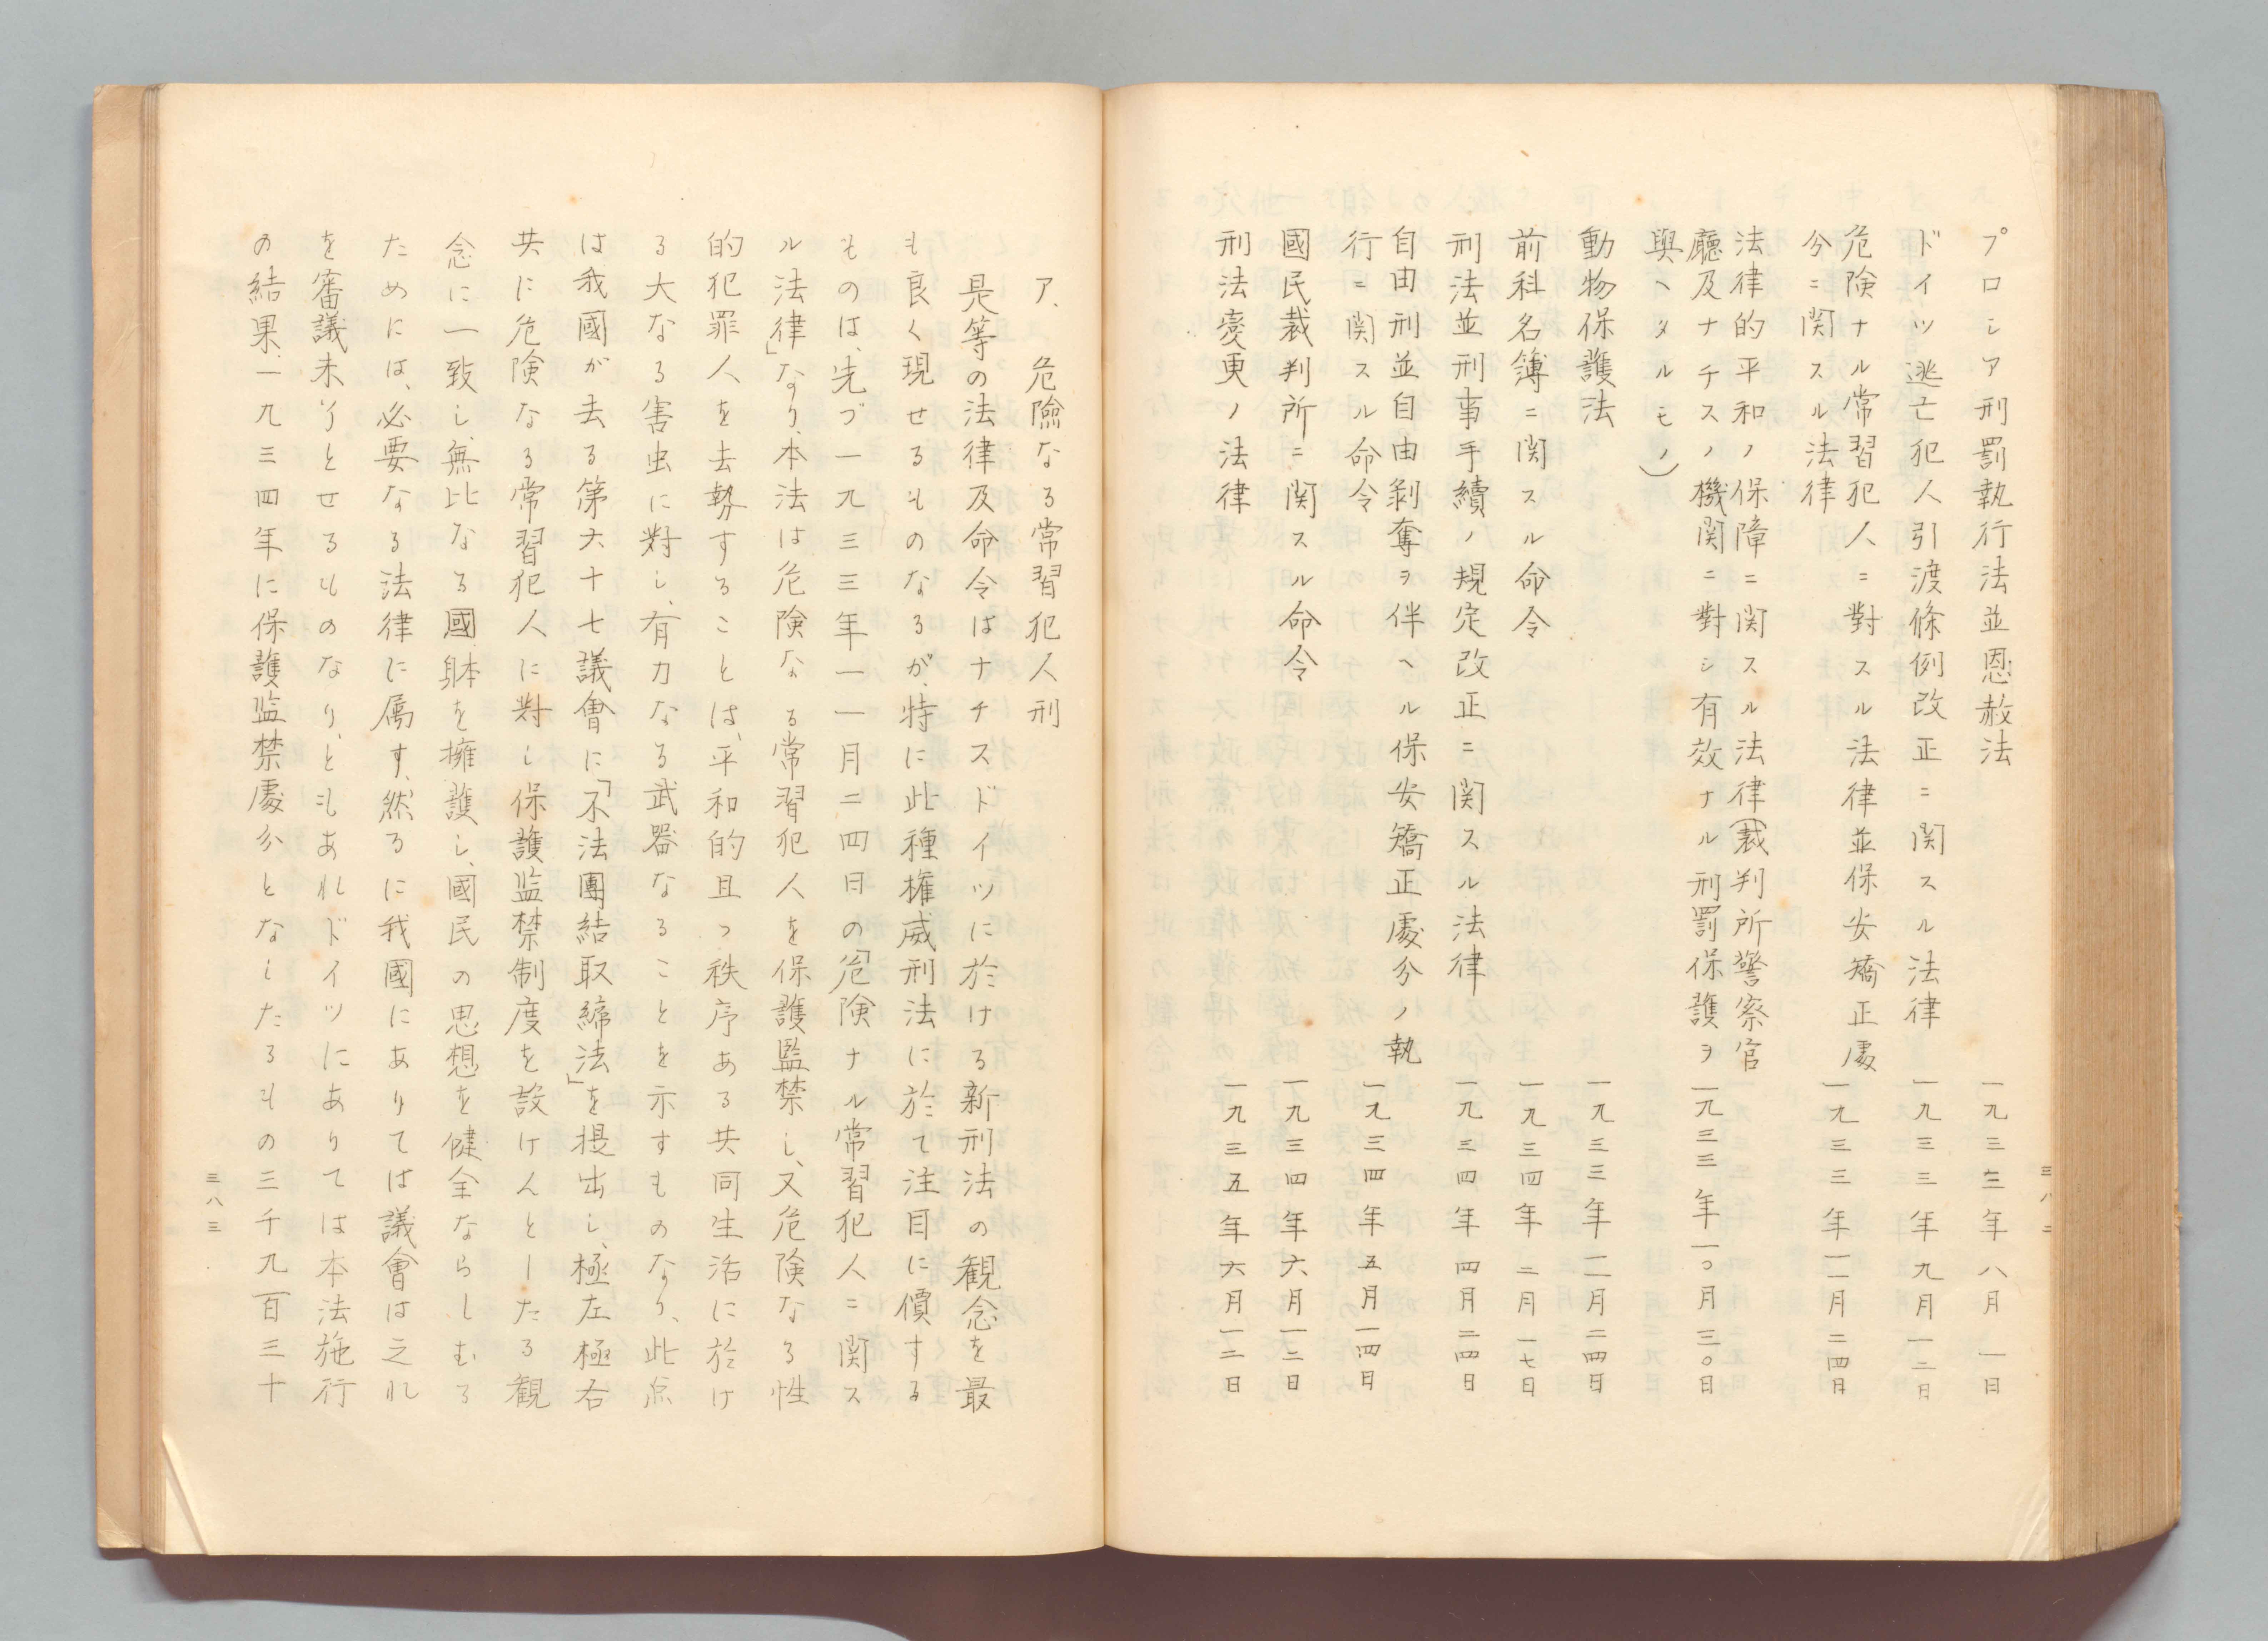 プロシア刑罰執行法並恩赦法 一九三三年八月一日
ドイツ逃亡犯人引渡條例改正ニ関スル法律 一九三三年九月一二日
危険ナル常習犯人ニ對スル法律並保安矯正處
分ニ関スル法律 一九三三年一一月二四日
法律的平和ノ保障ニ関スル法律(裁判所警察官
廳及ナチスノ機関ニ對シ有效ナル刑罰保護ヲ
與ヘタルモノ) 一九三三年一〇月三〇日
動物保護法 一九三三年一一月二四日
前科名簿ニ関スル命令 一九三四年二月一七日
刑法並刑事手續ノ規定改正ニ関スル法律 一九三四年四月二四日
自由刑並自由剥奪ヲ伴ヘル保安矯正處分ノ執
行ニ関スル命令 一九三四年五月一四日
國民裁判所ニ関スル命令 一九三四年六月一二日
刑法変更ノ法律 一九三五年六月一二日
三八二
ア、危險なる常習犯人刑
是等の法律及命令はナチスドイツに於ける新刑法の観念を最
も良く現せるものなるが、特に此種権威刑法に於て注目に價する
ものは、先づ一九三三年一一月二四日の「危険ナル常習犯人ニ関ス
ル法律」なり、本法は危険なる常習犯人を保護監禁し、又危険なる性
的犯罪人を去勢することは、平和的且つ秩序ある共同生活に於け
る大なる害虫に對し、有力なる武器なることを示すものなり、此点
は我國が去る第六十七議會に「不法團結取締法」を提出し、極左極右
共に危険なる常習犯人に對し保護監禁制度を設けんとしたる観
念に一致し、無比なる國躰を擁護し、國民の思想を健全ならしむる
ためには、必要なる法律に属す、然るに我國にありては議會は之れ
を審議未了とせるものなり、ともあれドイツにありては本法施行
の結果、一九三四年に保護監禁處分となしたるもの三千九百三十
三八三